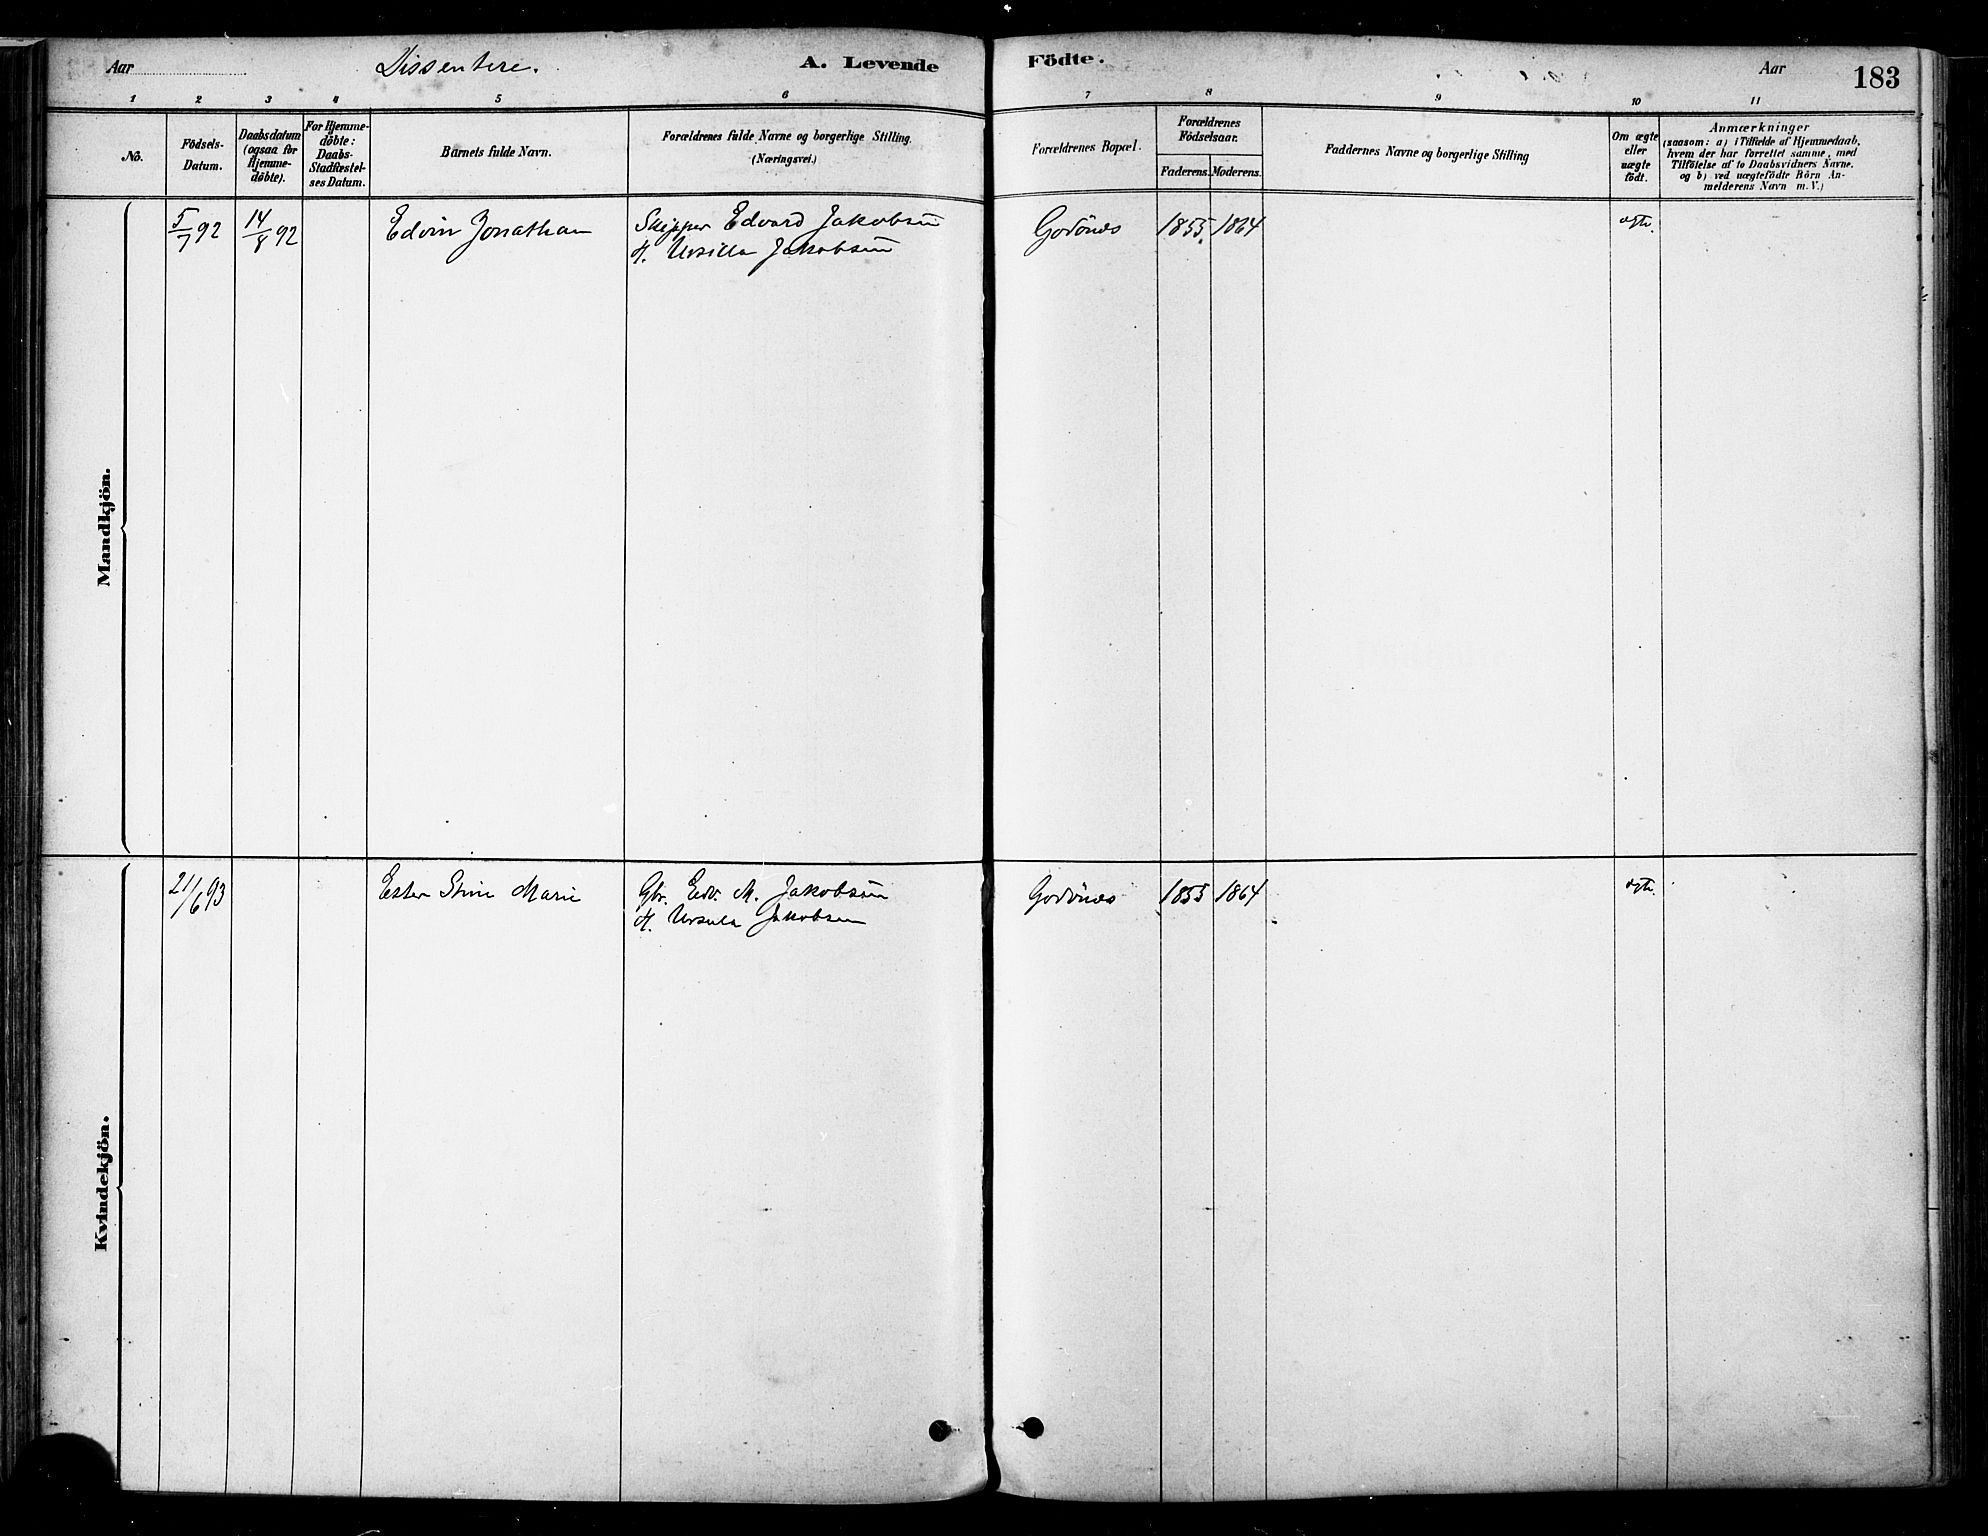 Aar
Dissentere.
A. Levende
Födte.
Aar
183
1 2 3 4 5 6 7 8 9 10 11
No.
Födsels-
Datum.
Daabsdatum
(ogsaa for
Hjemme-
döbte).
For Hjemme-
döbte:
Daabs-
Stadfæstel-
ses Datum.
Barnets fulde Navn.
Forældrenes fulde Navne og borgerlige Stilling.
(Næringsvei.)
Forældrenes Bopæl.
Forældrenes
Födselsaar.
Faderens.
Moderens.
Faddernes Navne og borgerlige Stilling
Om ægte
eller
uægte
födt.
Anmærkninger
(saasom: a) i Tilfælde af Hjemmedaab,
hvem der har forrettet samme, med
Tilföielse af to Daabsvidners Navne.
og b) ved uægtefödte Börn An-
melderens Navn m. V.)
Mandkjön.
5/7 92
14/8 92
Edvin Jonathan
Skipper Edvard Jakobsen
H. Ursilla Jakobsen
Godönes
1855.
1864
ægte.
Kvindekjön.
21/6 93
Ester Stine Marie
Gbr. Edv. M. Jakobsen
H. Ursula Jakobsen
Godönes
1855
1864
ægte.